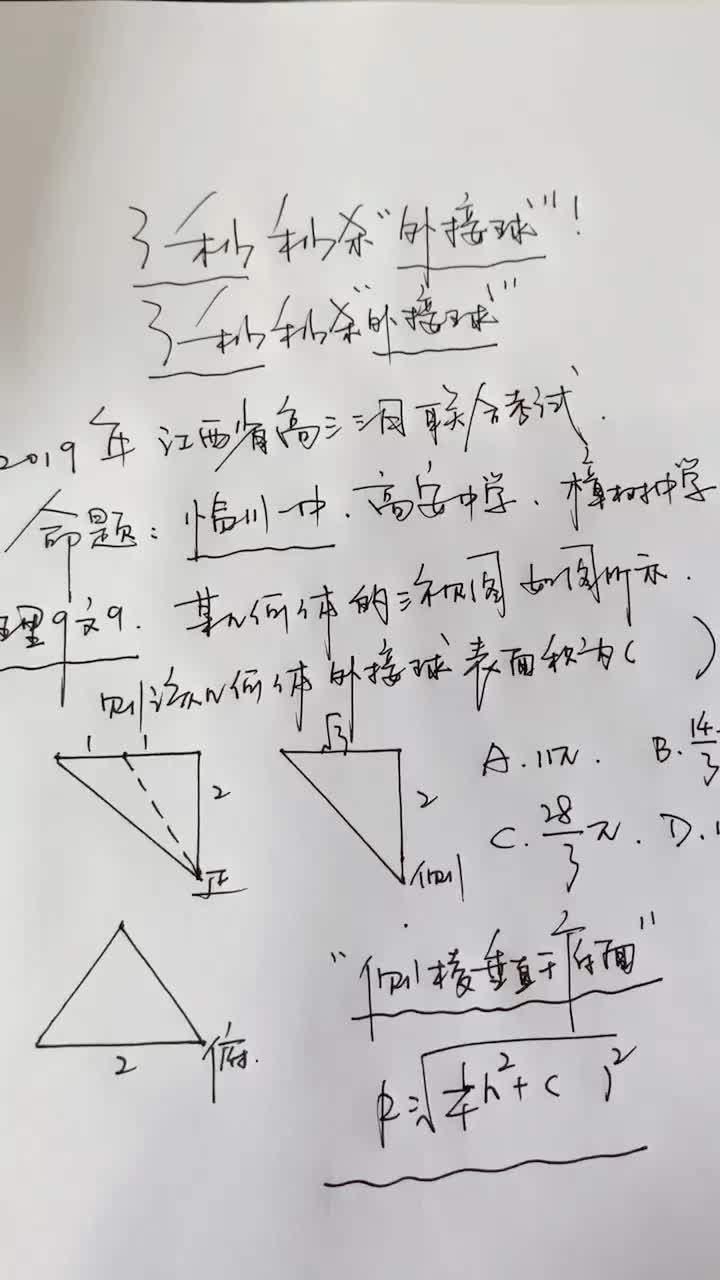 3秒秒杀“外接球”!
3秒秒杀“外接球”
2019年江西省高三三月联合考试.
命题:临川一中.高安中学、樟树中学
理9文9.某几何体的三视图如图所示.
则该几何体外接球表面积为( )
1 1 √3
A.11π. B.14/3
2 2
C.28/3 π. D.
正 侧
“侧棱垂直于底面”
2 俯.
R=√(1/4 h²+( )²)